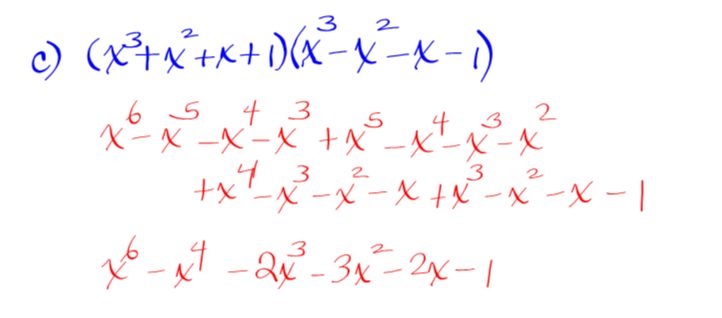 c) (x³+x²+x+1)(x³-x²-x-1)
x⁶-x⁵-x⁴-x³+x⁵-x⁴-x³-x²
+x⁴-x³-x²-x+x³-x²-x-1
x⁶-x⁴-2x³-3x²-2x-1